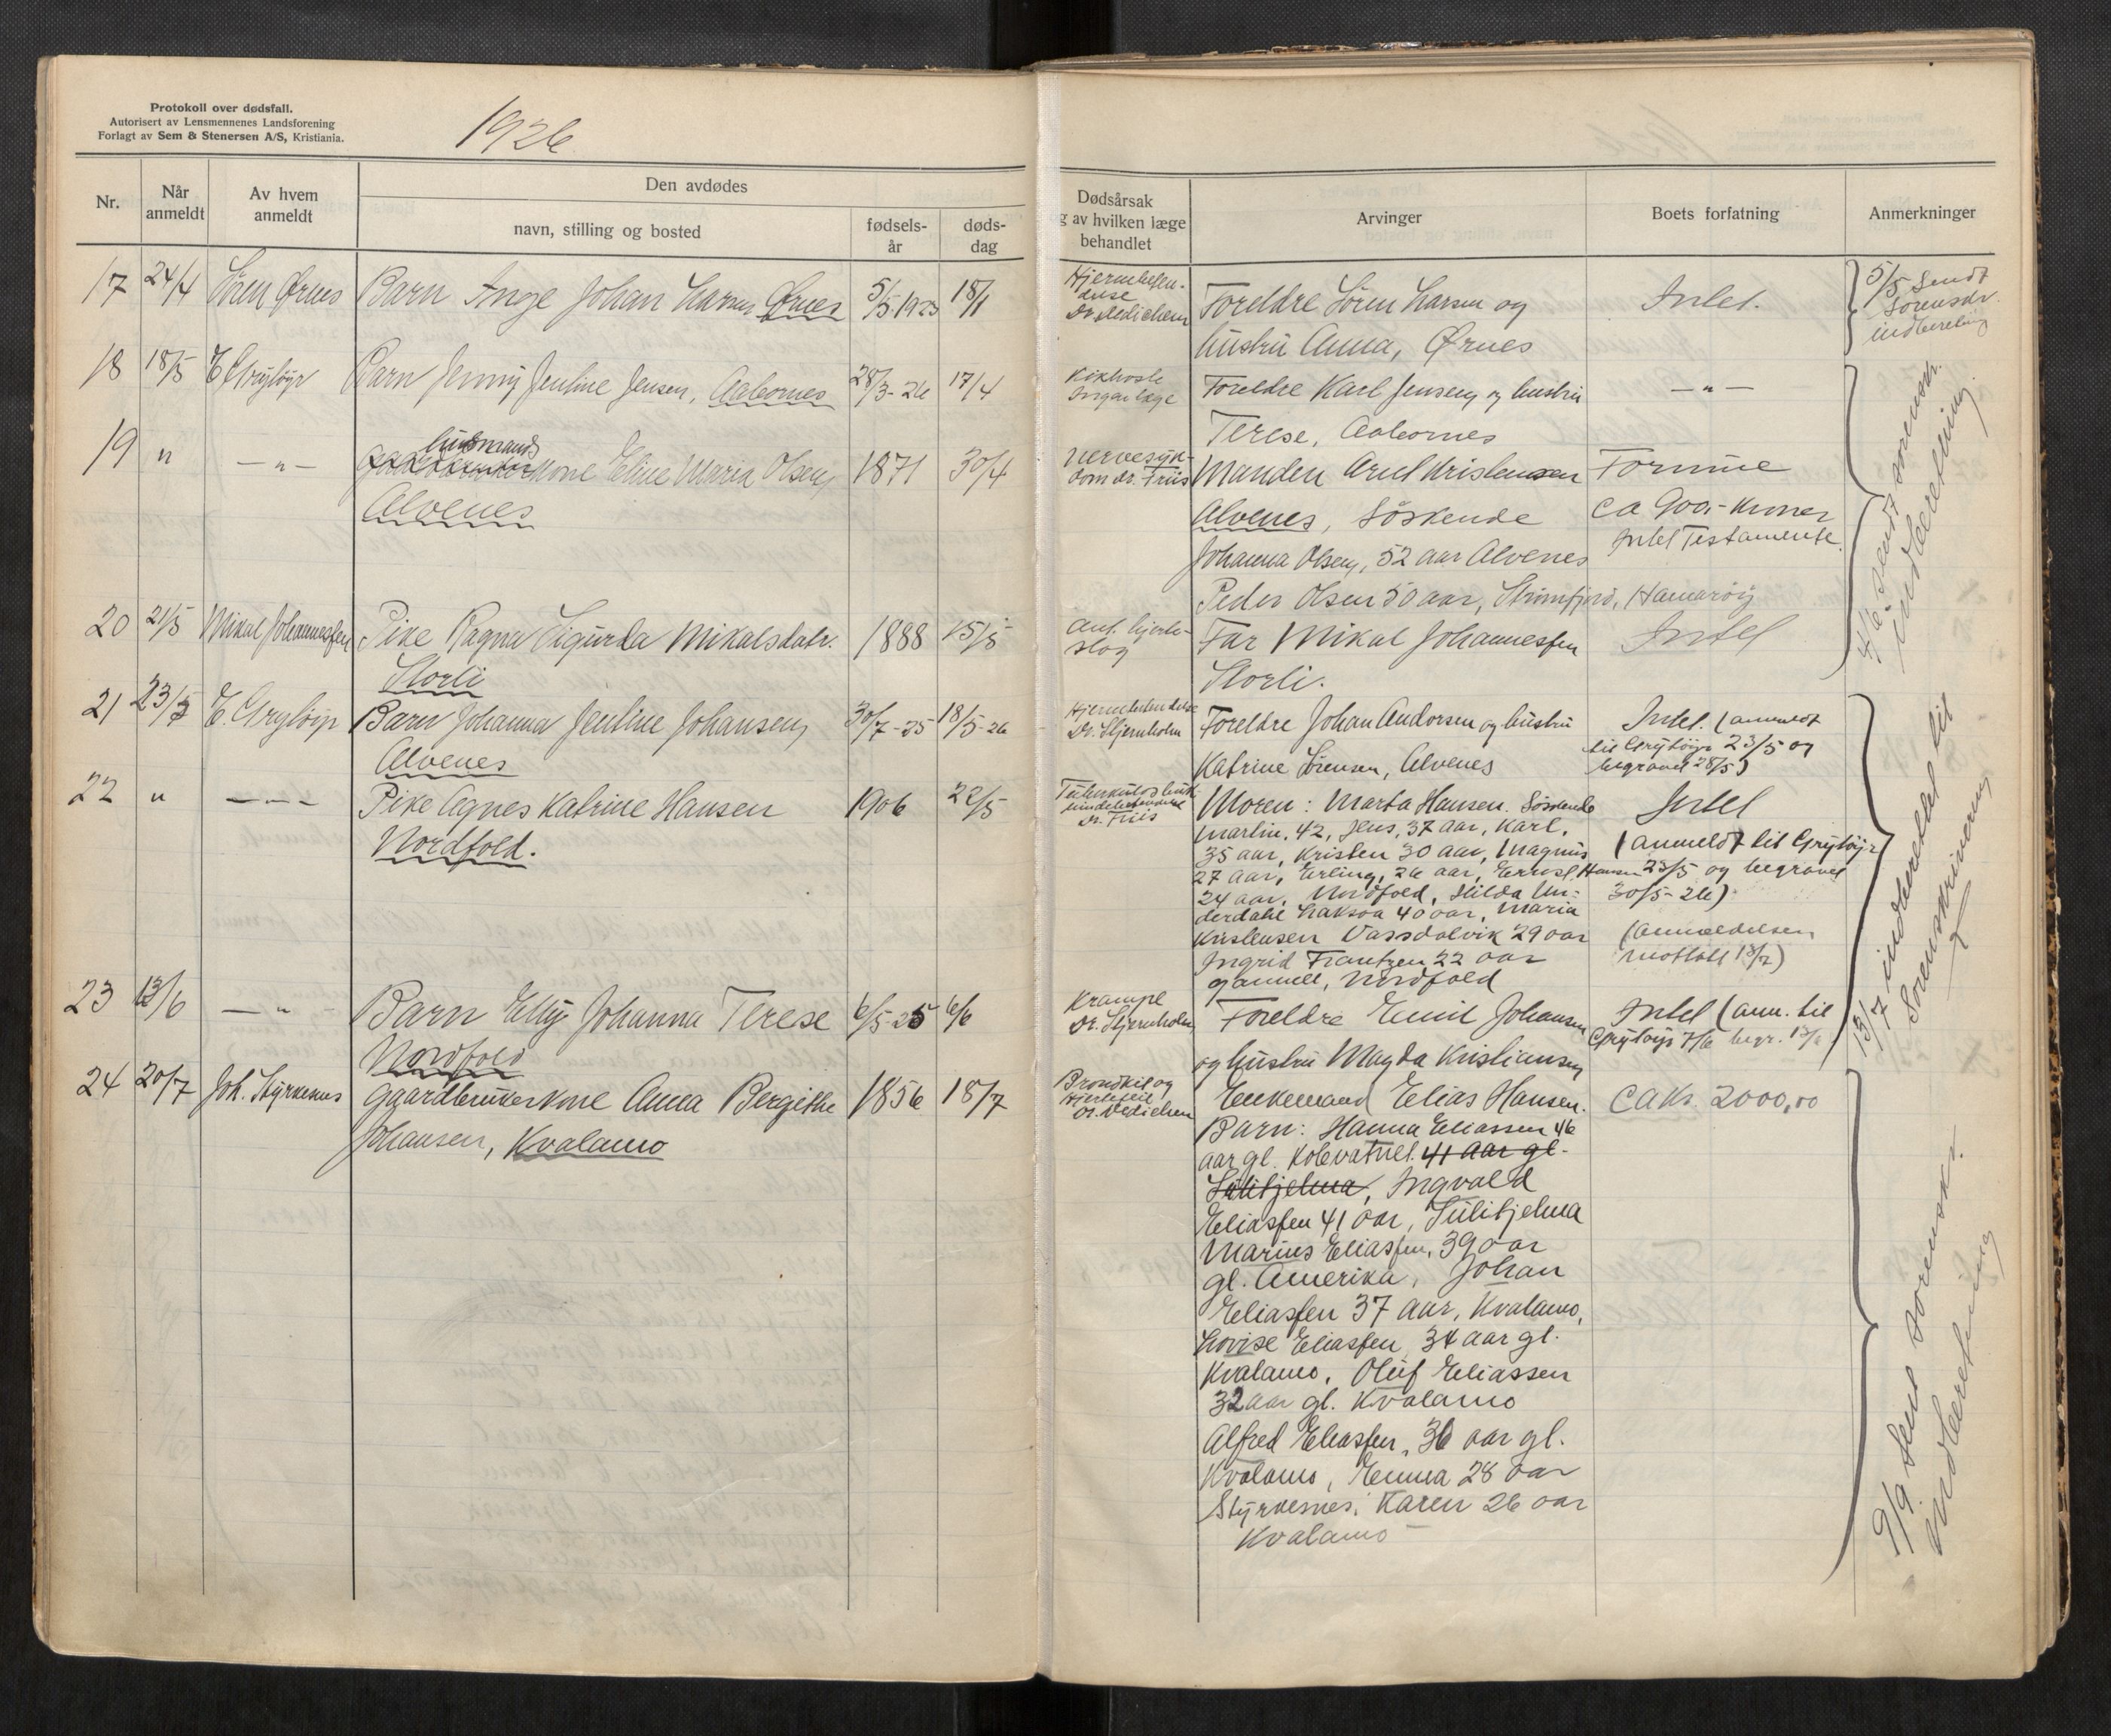 Protokoll over dødsfall.
Autorisert av Lensmennenes Landsforening
Forlagt av Sem & Stenersen A/S, Kristiania.
1926
Nr.
Når anmeldt
Av hvem anmeldt
Den avdødes
navn, stilling og bosted
fødsels-år
døds-dag
Dødsårsak
og av hvilken læge
behandlet
Arvinger
Boets forfatning
Anmerkninger
17 24/4 Sören Ørnes Barn Inge Johan Larsen Ørnes 5/5.1925 18/1
Dr. Dedichen
Foreldre Sören Larsen og
hustru Anna, Ørnes
Intet.
5/5 Sendt
Sorenskr.
indberetning
18 18/5 E Grytöyr Barn Jenny Jentine Jensen, Aalsornes 28/3-26 17/4
Kikhoste
Ingen læge
Foreldre Karl Jensen og hustru
Terese, Aalsornes
— " —
19 " — " — husmands
kone Eline Maria Olsen 1871 30/4
Alvenes
Nervesyk-
dom dr. Friis
Manden Arnt Kristensen
Alvenes, Söskende
Johanna Olsen, 52 aar Alvenes
Peder Olsen 50 aar, Strömfjord, Hamaröy
Formue
ca 900,- Kroner
Intet Testamente.
20 21/5 Mikal Johannesen Pike Ragna Sigurda Mikalsdatr. 1888 15/5
Storli
Ant. hjerte-
slag
Far Mikal Johannesen
Storli.
Intet
4/6. sendt sorenskr.
indberetning.
21 23/5 E. Grytöyr Barn Johanna Jentine Johansen 30/7-25 18/5-26
Alvenes
Dr. Stjernholm
Foreldre Johan Andorsen og hustru
Katrine Sörensen, Alvenes
Intet. (anmeldt
til Grytöyr 23/5 og
begravet 28/5)
22 " — " — Pike Agnes Katrine Hansen 1906 22/5
Nordfold.
Dr. Friis
Moren: Marta Hansen. Söskende
Martin, 42, Jens, 37 aar, Karl,
35 aar, Kristen 30 aar, Magnus
27 aar, Erling, 26 aar, Ernst Hansen
24 aar, Nordfold, Hilda Un-
derdahl Laksaa 40 aar, Maria
Kristensen Vassdalvik 29 aar
Ingrid Frantzen 22 aar
gammel, Nordfold
Intet
(anmeldt til Grytöyr
23/5 og begravet
30/5-26)
(anmeldelsen
mottatt 13/7)
23 13/6 — " — Barn Elly Johanna Terese 6/5-25 6/6
Nordfold
Krampe
Dr. Stjernholm
Foreldre Emil Johansen
og hustru Magda Kristiansen
Intet (anm. til
Grytöyr 7/6 begr. 13/6
13/7 indberettet til
Sorenskriveren
24 20/7 Joh. Styrkesnes Gaardbrukerkone Anna Bergithe 1856 18/7
Johansen, Kvalamo
Bronkit og
hjertefeil
Dr. Dedichen
Enkemand Elias Hansen.
Barn: Hanna Eliassen 46
aar gl. Kolevatnet. 41 aar gl.
Sulitjelma, Ingvald
Eliassen 41 aar, Sulitjelma
Marius Eliassen, 39 aar
gl. Amerika, Johan
Eliassen 37 aar, Kvalamo,
Lovise Eliassen, 34 aar gl.
Kvalamo, Oluf Eliassen
32 aar gl. Kvalamo
Alfred Eliassen, 36 aar gl.
Kvalamo, Emma 28 aar
Styrkesnes, Karen 26 aar
Kvalamo
ca Kr. 2000,00
9/9 sent sorenskr.
indberetning